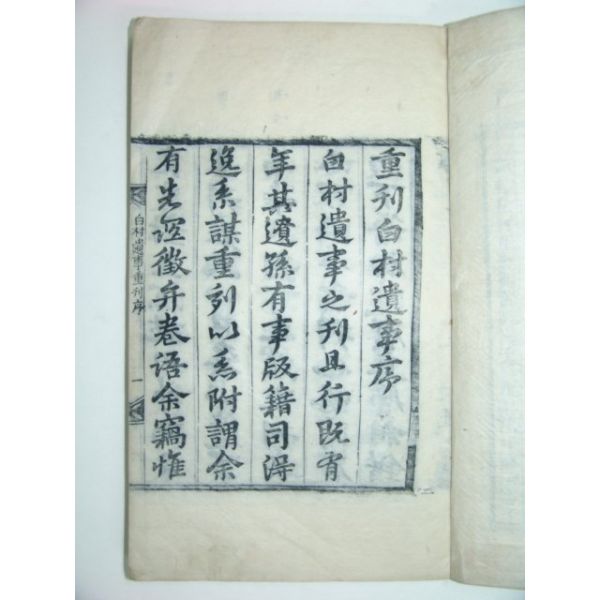 重刊白村遺事序
白村遺事之刊且行既有
年其遺孫有事版籍司得
逸系謀重刊以系附謂余
有先誼徵弁卷語余竊惟
白村遺事重刊序
一